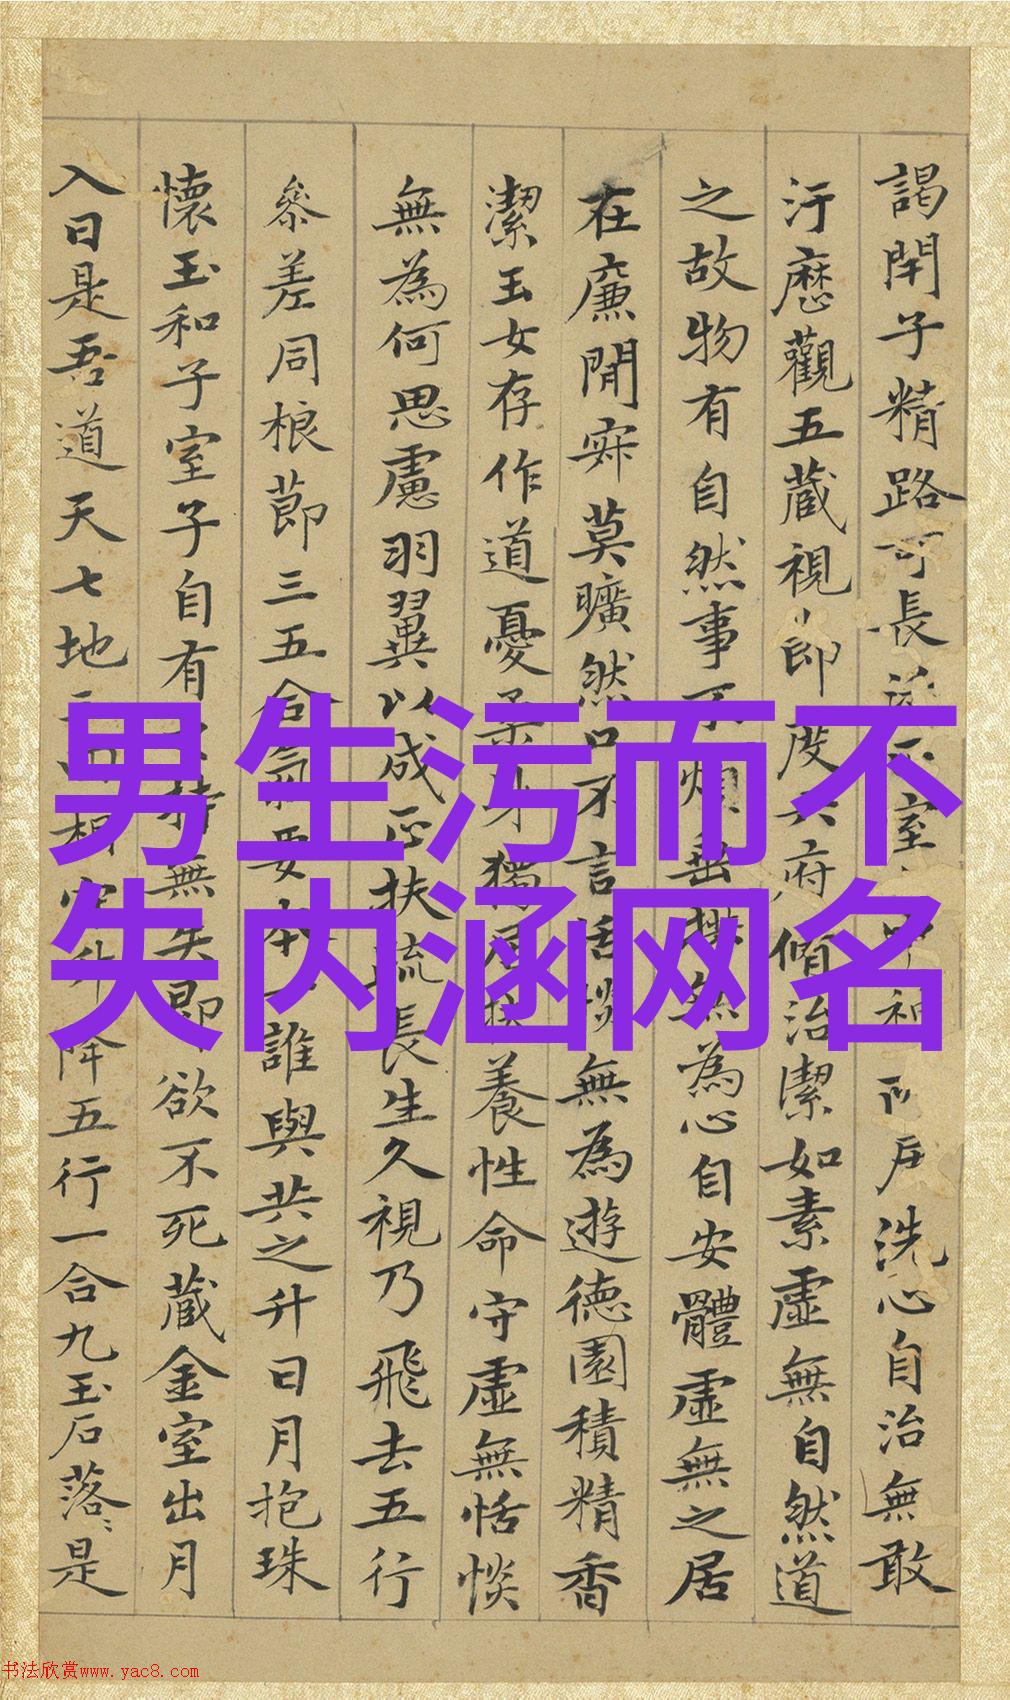 謁閇子精路可長 室 中和 戶洗心自治無敢
汙歷觀五藏視 節度六府脩治潔如素虛無自然道
之故物有自然事不煩垂拱無為心自安體虛無之居
在廉間寂莫曠然口不言恬惔無為遊德園積精香
潔玉女存作道憂柔身獨居扶養性命守虛無恬惔
無為何思慮羽翼以成正扶疏長生久視乃飛去五行
參差同根莭三五合氣要本一誰與共之升日月抱珠
懷玉和子室子自有 持無失即欲不死藏金室出月
入日是吾道天七地三回相守升降五行一合九玉石落〻是
男生污而不
失内涵网名
书法欣赏www.yac8.com